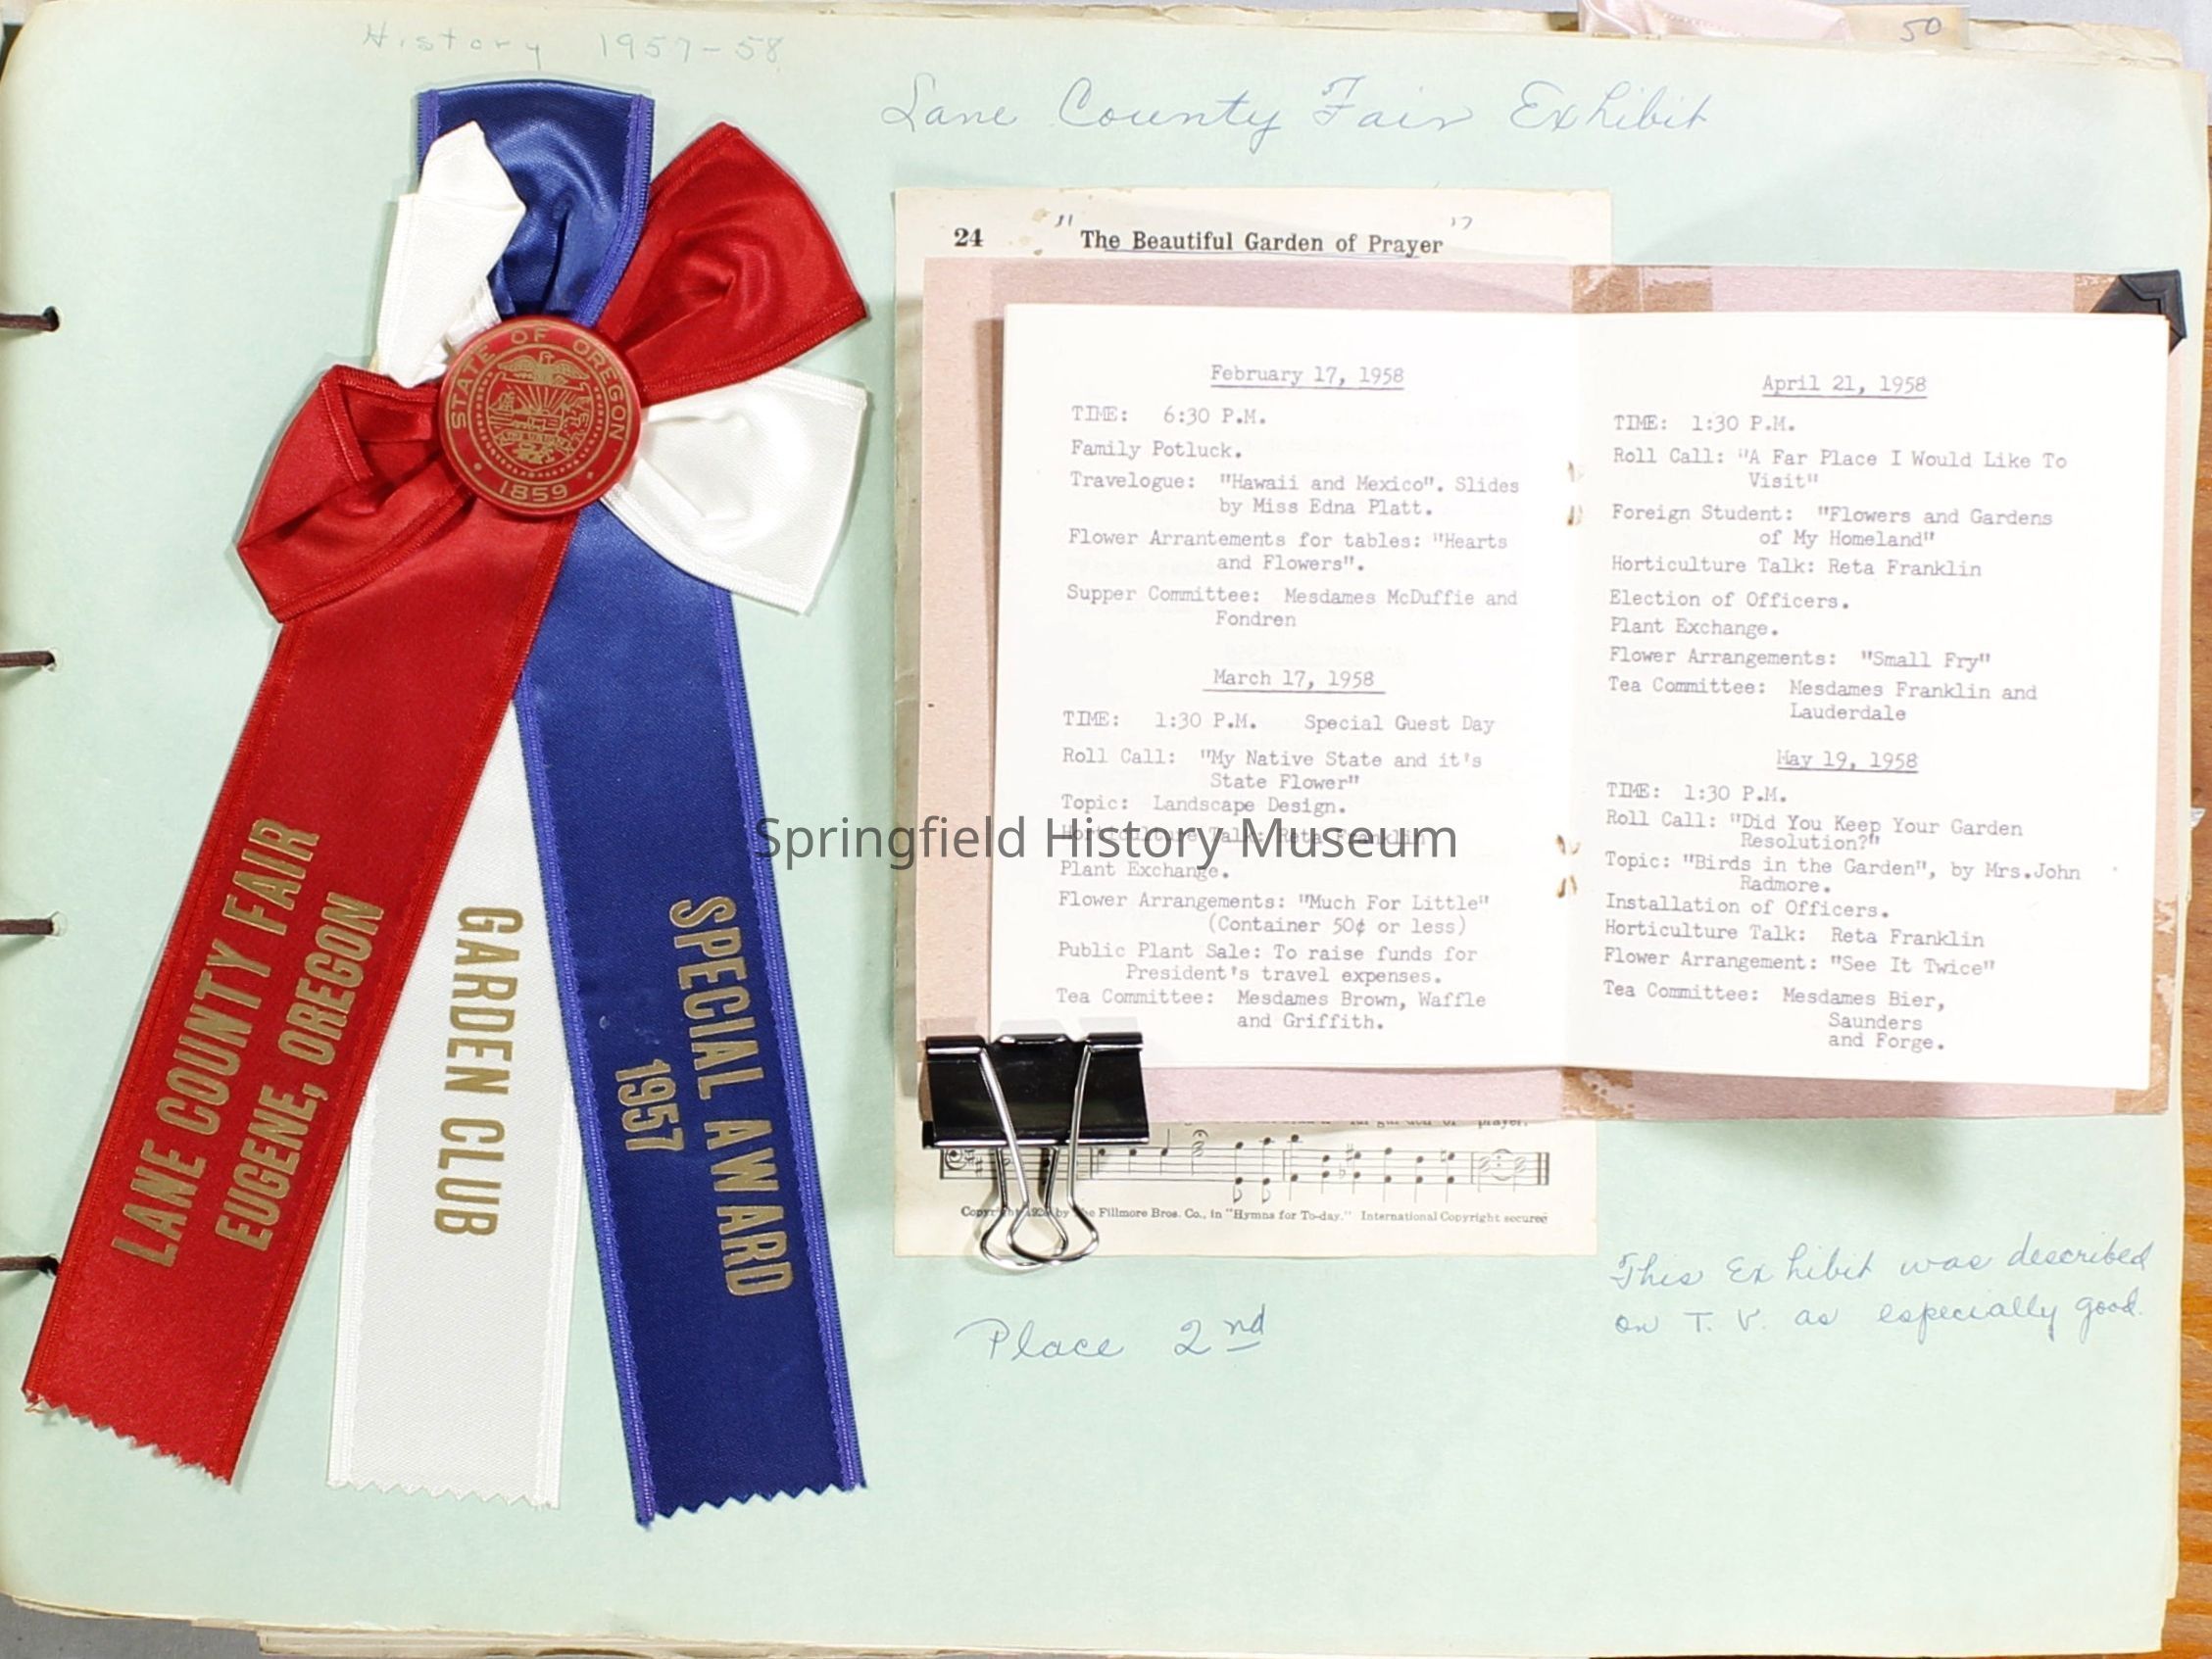 History 1957-58
50
Lane County Fair Exhibit
STATE OF OREGON
1859
LANE COUNTY FAIR
EUGENE, OREGON
GARDEN CLUB
SPECIAL AWARD
1957
24 "The Beautiful Garden of Prayer"
February 17, 1958
TIME: 6:30 P.M.
Family Potluck.
Travelogue: "Hawaii and Mexico". Slides
by Miss Edna Platt.
Flower Arrantements for tables: "Hearts
and Flowers".
Supper Committee: Mesdames McDuffie and
Fondren
March 17, 1958
TIME: 1:30 P.M. Special Guest Day
Roll Call: "My Native State and it's
State Flower"
Topic: Landscape Design.
Horticulture Talk: Reta Franklin
Plant Exchange.
Flower Arrangements: "Much For Little"
(Container 50¢ or less)
Public Plant Sale: To raise funds for
President's travel expenses.
Tea Committee: Mesdames Brown, Waffle
and Griffith.
April 21, 1958
TIME: 1:30 P.M.
Roll Call: "A Far Place I Would Like To
Visit"
Foreign Student: "Flowers and Gardens
of My Homeland"
Horticulture Talk: Reta Franklin
Election of Officers.
Plant Exchange.
Flower Arrangements: "Small Fry"
Tea Committee: Mesdames Franklin and
Lauderdale
May 19, 1958
TIME: 1:30 P.M.
Roll Call: "Did You Keep Your Garden
Resolution?"
Topic: "Birds in the Garden", by Mrs.John
Radmore.
Installation of Officers.
Horticulture Talk: Reta Franklin
Flower Arrangement: "See It Twice"
Tea Committee: Mesdames Bier,
Saunders
and Forge.
Springfield History Museum
prayer.
Copyright by Fillmore Bros. Co., in "Hymns for To-day." International Copyright secured
Place 2nd
This Exhibit was described
on T. V. as especially good.